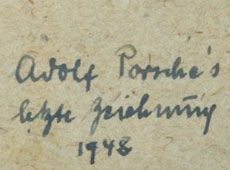 Adolf Porsche's
letzte Zeichnung
1948